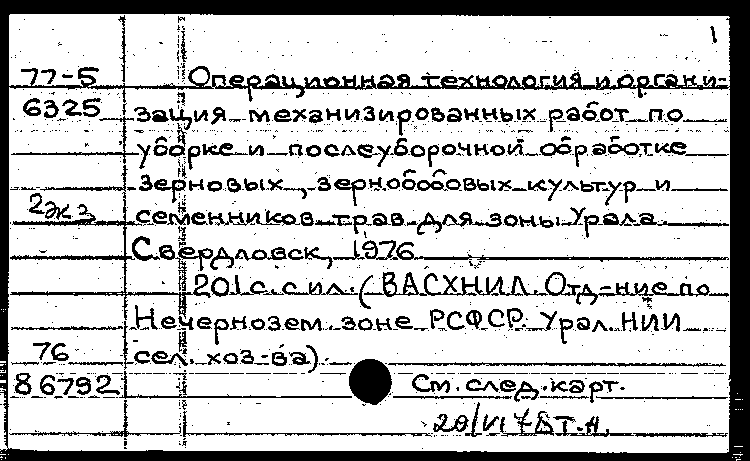 1
77-5 Операционная технология и органи-
6325 зация механизированных работ по
уборке и послеуборочной обработке
зерновых, зернобобовых культур и
2экз семенников трав для зоны Урала.
Свердловск, 1976.
201 с. с ил. (ВАСХНИЛ. Отд-ние по
Нечернозем. зоне РСФСР. Урал. НИИ
76 сел. хоз-ва).
86792 См. след. карт.